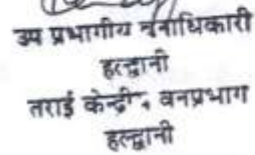 उप प्रभागीय वनाधिकारी
हल्द्वानी
तराई केन्द्रीय वनप्रभाग
हल्द्वानी